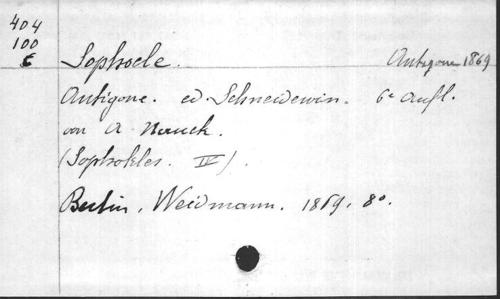 404
100
E
Sophocle. Antigone 1869
Antigone. ed Schneidewin. 6e Aufl.
von A Nauck.
(Sophokles. IV).
Berlin, Weidmann. 1869. 8o.